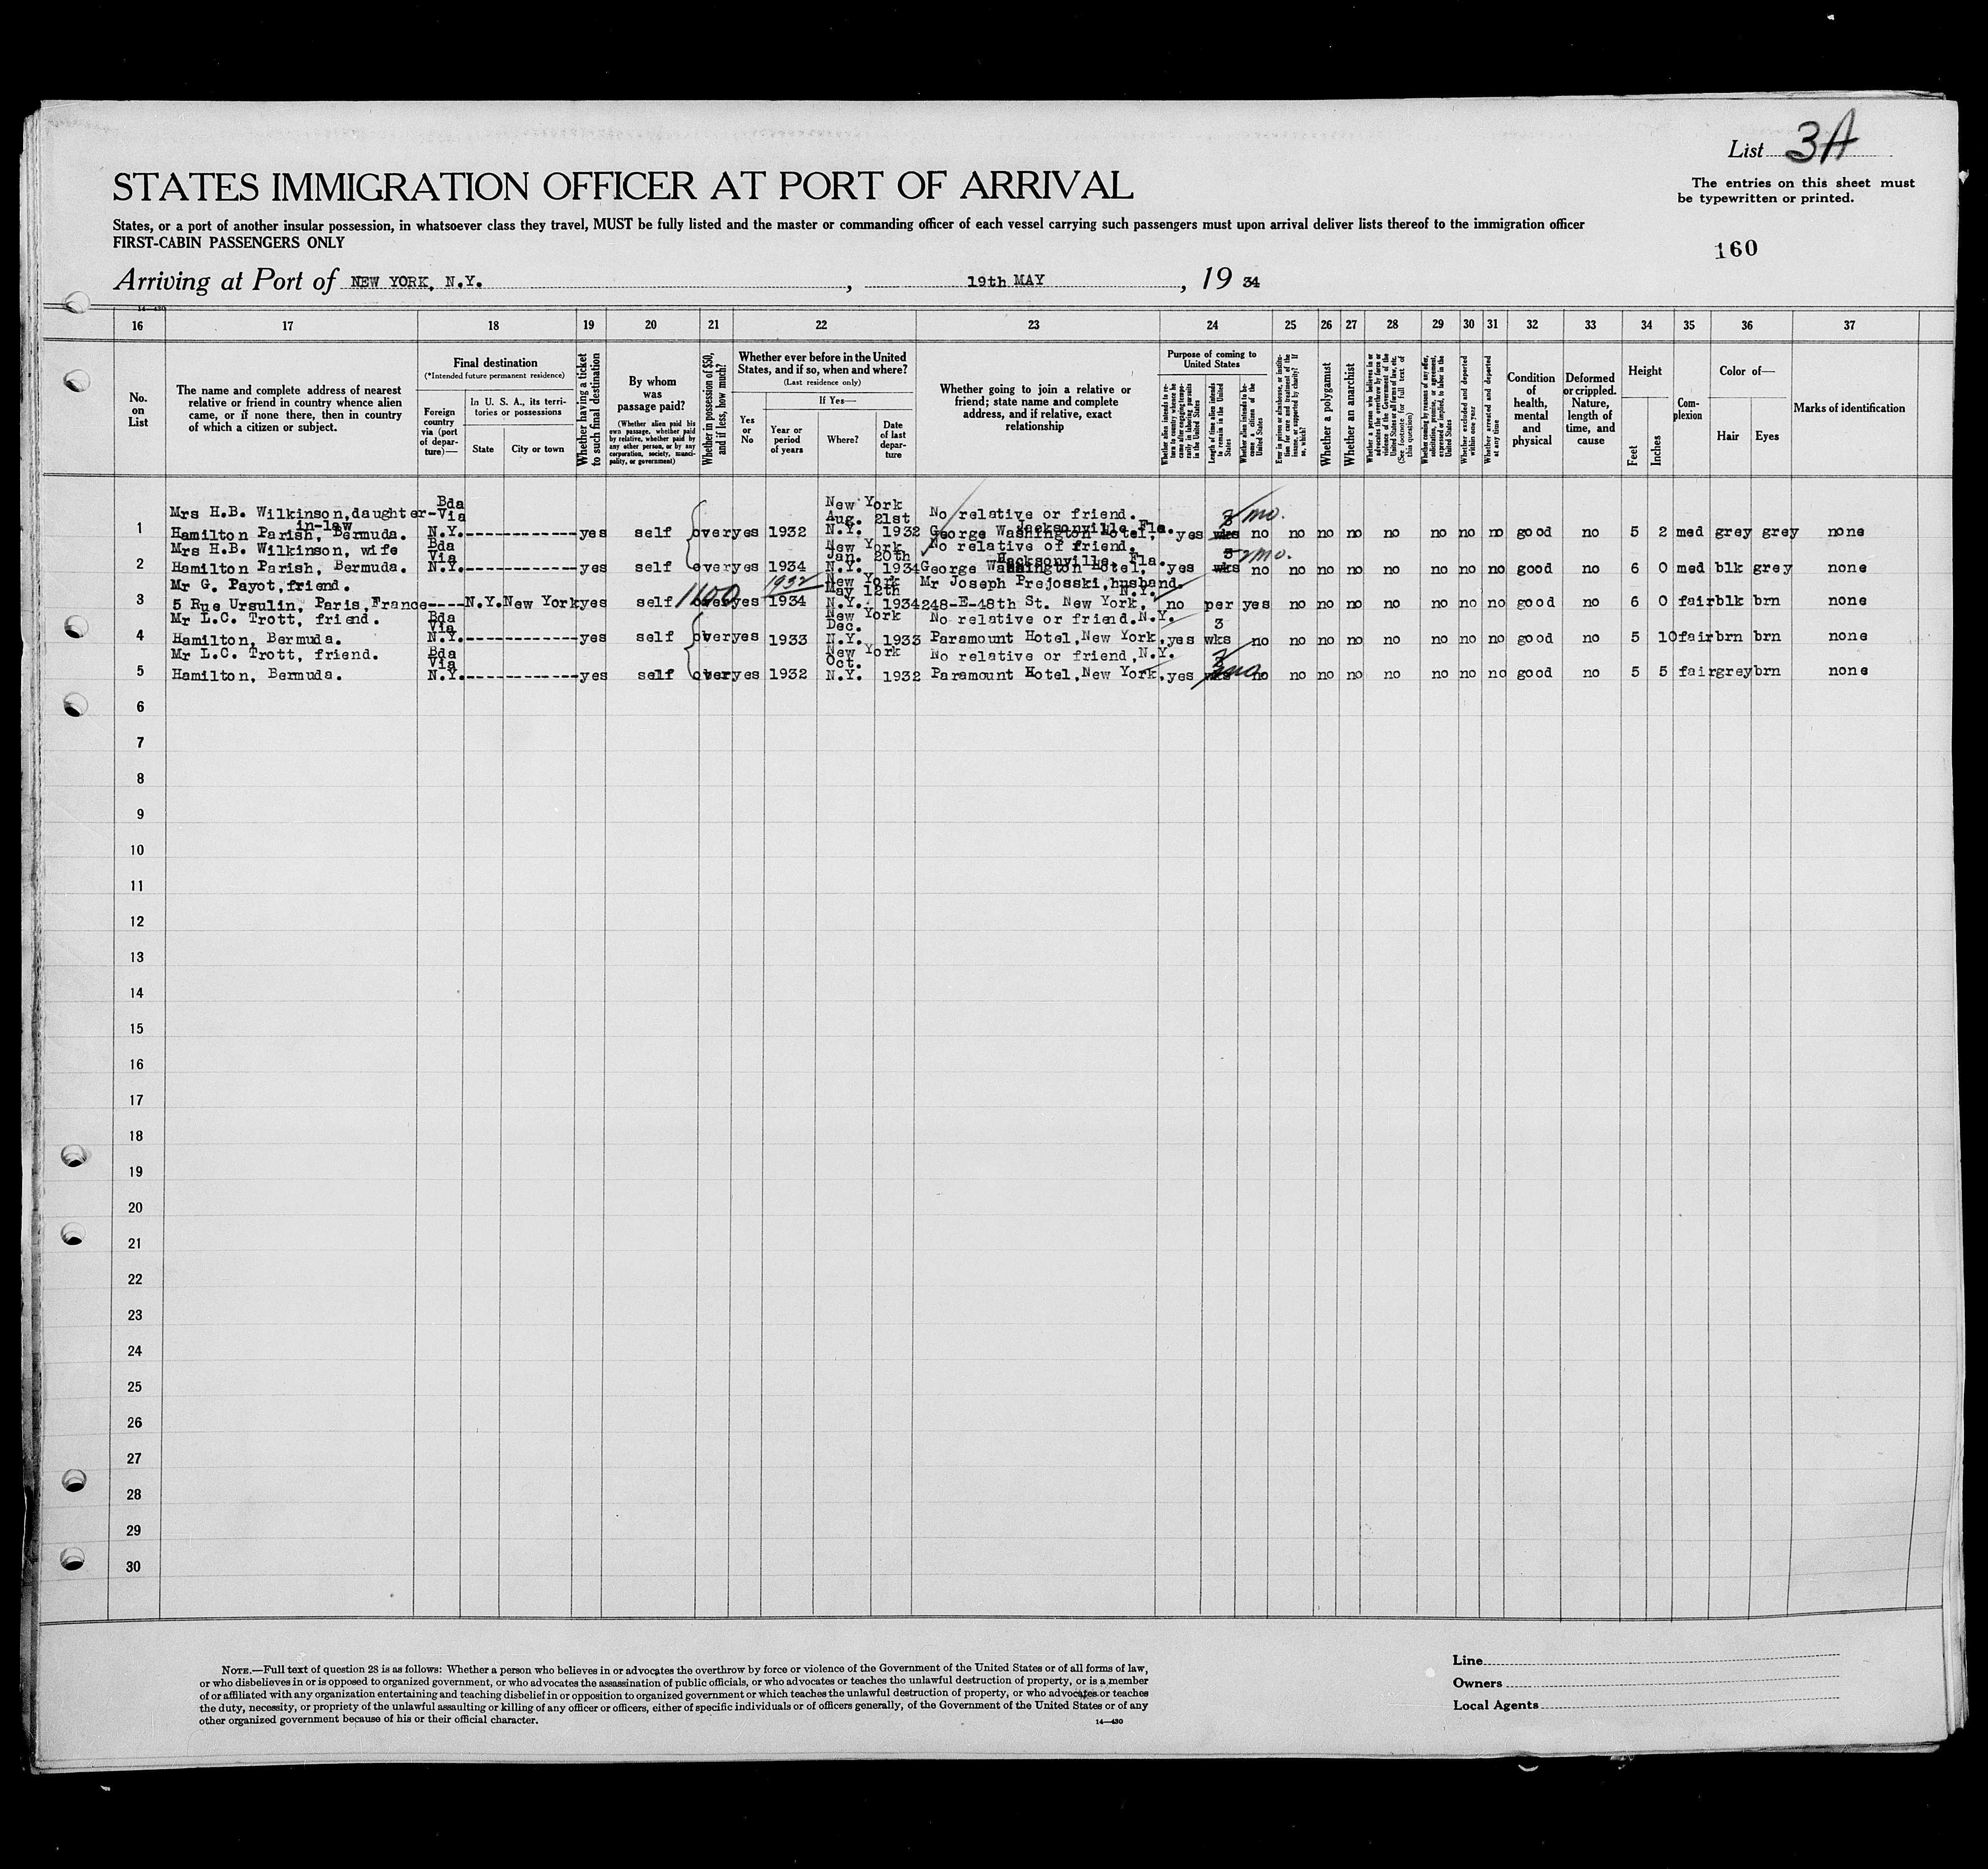 List 3A
STATES IMMIGRATION OFFICER AT PORT OF ARRIVAL
The entries on this sheet must
be typewritten or printed.
States, or a port of another insular possession, in whatsoever class they travel, MUST be fully listed and the master or commanding officer of each vessel carrying such passengers must upon arrival deliver lists thereof to the immigration officer
FIRST-CABIN PASSENGERS ONLY
160
Arriving at Port of NEW YORK, N.Y. , 19th MAY , 19 34
14—430
16 17 18 19 20 21 22 23 24 25 26 27 28 29 30 31 32 33 34 35 36 37
No. on List
The name and complete address of nearest relative or friend in country whence alien came, or if none there, then in country of which a citizen or subject.
Final destination
(*Intended future permanent residence)
Foreign country via (port of departure)—
In U. S. A., its territories or possessions
State
City or town
Whether having a ticket to such final destination
By whom was passage paid?
(Whether alien paid his own passage, whether paid by relative, whether paid by any other person, or by any corporation, society, municipality, or government)
Whether in possession of $50, and if less, how much?
Whether ever before in the United States, and if so, when and where?
(Last residence only)
Yes or No
If Yes—
Year or period of years
Where?
Date of last departure
Whether going to join a relative or friend; state name and complete address, and if relative, exact relationship
Purpose of coming to United States
Length of time alien intends to remain in the United States
Whether alien intends to become a citizen of the United States
Whether a polygamist
Whether an anarchist
Whether excluded and deported within one year
Whether arrested and deported at any time
Condition of health, mental and physical
Deformed or crippled. Nature, length of time, and cause
Height
Feet
Inches
Complexion
Color of—
Hair
Eyes
Marks of identification
Mrs H.B. Wilkinson,daughter- Bda Via New York Aug. 21st No relative or friend. Jacksonville Fla. mo.
1 in-law Hamilton Parish, Bermuda. N.Y.------------yes self over yes 1932 N.Y. 1932 George Washington Hotel, yes wks no no no no no no no no good no 5 2 med grey grey none
Mrs H.B. Wilkinson, wife Bda Via New York Jan. 20th No relative of friend. Jacksonville, Fla. mo.
2 Hamilton Parish, Bermuda. N.Y.------------yes self over yes 1934 N.Y. 1934 George Washington Hotel, yes wks no no no no no no no no good no 6 0 med blk grey none
Mr G. Payot,friend. 1932 New York May 12th Mr Joseph Prejosski,husband. N.Y.
3 5 Rue Ursulin, Paris,France----N.Y.New York yes self 1100 over yes 1934 N.Y. 1934 248-E-48th St. New York, no per yes no no no no no no no good no 6 0 fair blk brn none
Mr L.C. Trott, friend. Bda Via New York Dec. No relative or friend.N.Y. 3
4 Hamilton, Bermuda. N.Y.------------yes self over yes 1933 N.Y. 1933 Paramount Hotel,New York.yes wks no no no no no no no no good no 5 10 fair brn brn none
Mr L.C. Trott, friend. Bda Via New York Oct. No relative or friend,N.Y.
5 Hamilton, Bermuda. N.Y.------------yes self over yes 1932 N.Y. 1932 Paramount Hotel,New York.yes wks mo no no no no no no no no good no 5 5 fair grey brn none
6
7
8
9
10
11
12
13
14
15
16
17
18
19
20
21
22
23
24
25
26
27
28
29
30
NOTE.—Full text of question 28 is as follows: Whether a person who believes in or advocates the overthrow by force or violence of the Government of the United States or of all forms of law,
or who disbelieves in or is opposed to organized government, or who advocates the assassination of public officials, or who advocates or teaches the unlawful destruction of property, or is a member
of or affiliated with any organization entertaining and teaching disbelief in or opposition to organized government or which teaches the unlawful destruction of property, or who advocates or teaches
the duty, necessity, or propriety of the unlawful assaulting or killing of any officer or officers, either of specific individuals or of officers generally, of the Government of the United States or of any
other organized government because of his or their official character.
14—430
Line
Owners
Local Agents